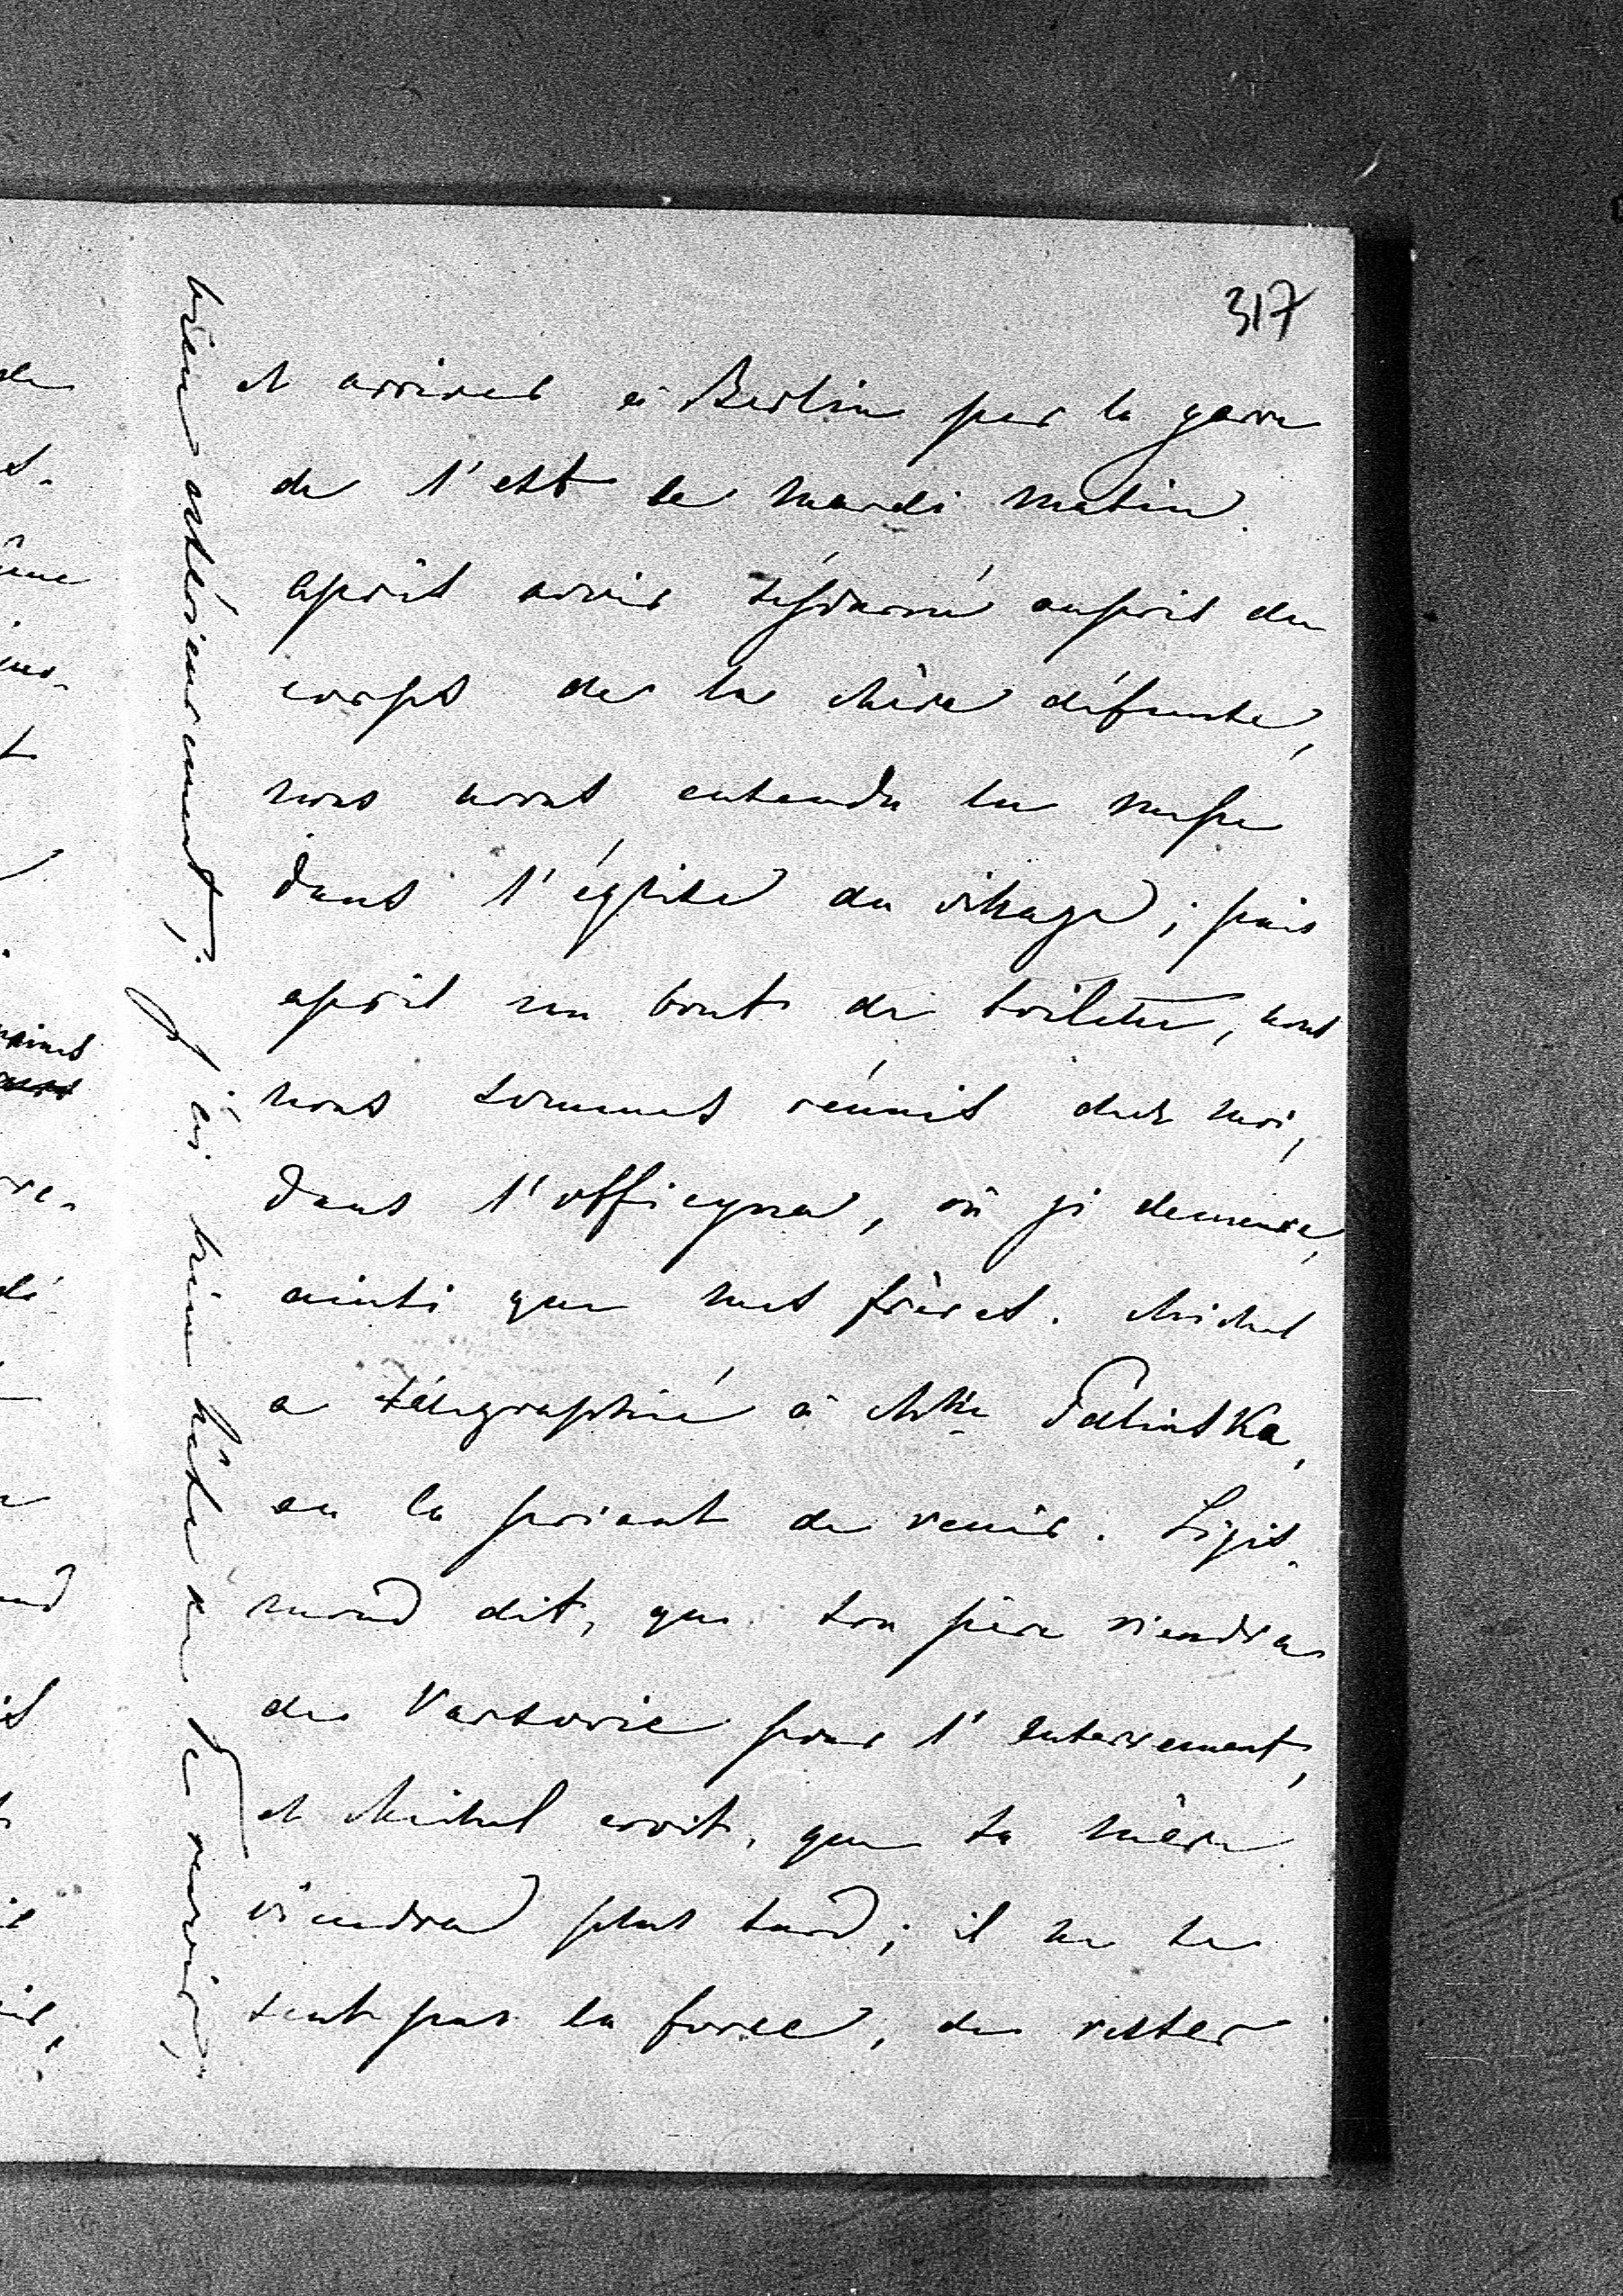 317
et arriver à Berlin par la gare
de l'est le mardi matin.
Après avoir séjourné auprès du
corps de la chère défunte,
nous avons entendu la messe
dans l'église du village; puis
après un bout de toilette, nous
nous sommes réunis chez moi,
dans l'officyna, où je demeure,
ainsi que mes frères. Michel
a télégraphié à Mlle Falinska,
en la priant de venir. Sigis-
mond dit, que ton père viendra
de Varsovie pour l'enterrement,
et Michel croit, que ta mère
viendra plus tard; il ne se
sent pas la force, de rester
bien extérieurement; j'ai bien hâte de te revoir,